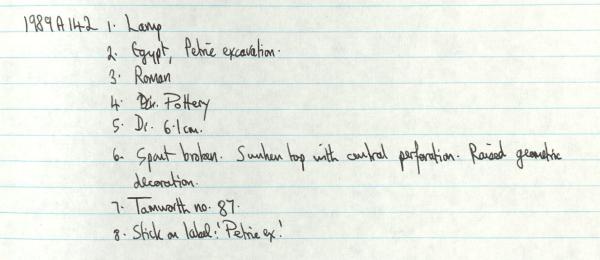 1989A142 1. Lamp
2. Egypt, Petrie excavation.
3. Roman
4. Pottery
5. Dr. 6.1cm.
6. Spout broken. Sunken top with central perforation. Raised geometric
decoration.
7. Tamworth no. 87.
8. Stick on label: 'Petrie ex.'